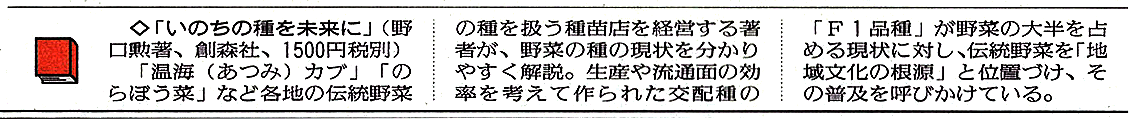 ◇「いのちの種を未来に」（野
口勲著、創森社、1500円税別）
「温海（あつみ）カブ」「の
らぼう菜」など各地の伝統野菜
の種を扱う種苗店を経営する著
者が、野菜の種の現状を分かり
やすく解説。生産や流通面の効
率を考えて作られた交配種の
「Ｆ１品種」が野菜の大半を占
める現状に対し、伝統野菜を「地
域文化の根源」と位置づけ、そ
の普及を呼びかけている。